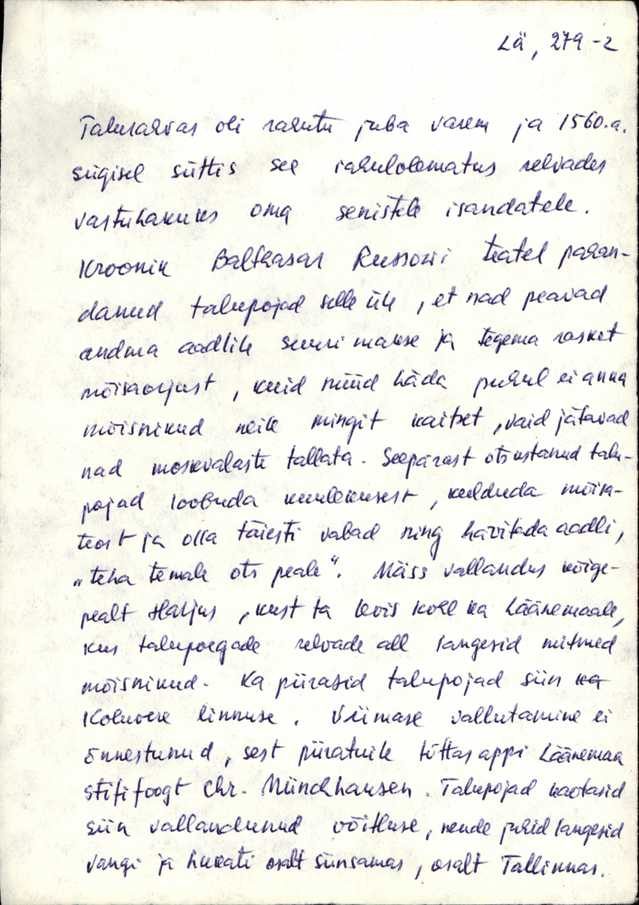 Lä, 279-2
Talurahvas oli rahutu juba varem ja 1560.a.
sügisel süttis see rahulolematus relvades
vastuhakuks oma senistele isandatele.
Kroonik Balthasar Russowi teatel pahan-
danud talupojad selle üle, et nad peavad
andma aadlile suuri makse ja tegema rasket
mõisaorjust, kuid nüüd häda puhul ei anna
mõisnikud neile mingit kaitset, vaid jätavad
nad moskvalaste tallata. Seepärast otsustanud talu-
pojad loobuda kuulekusest, keelduda mõisa-
teost ja olla täiesti vabad ning hävitada aadli,
„teha temale ots peale“. Mäss vallandus kõige-
pealt Harjus, kust ta levis kohe ka Läänemaale,
kus talupoegade relvade all langesid mitmed
mõisnikud. Ka piirasid talupojad siin ka
Koluvere linnuse. Viimase vallutamine ei
õnnestunud, sest piiratuile tõttas appi Läänemaa
stiftifoogt Chr. Münchhausen. Talupojad kaotasid
siin vallandunud võitluse, nende juhid langesid
vangi ja hukati osalt siinsamas, osalt Tallinnas.